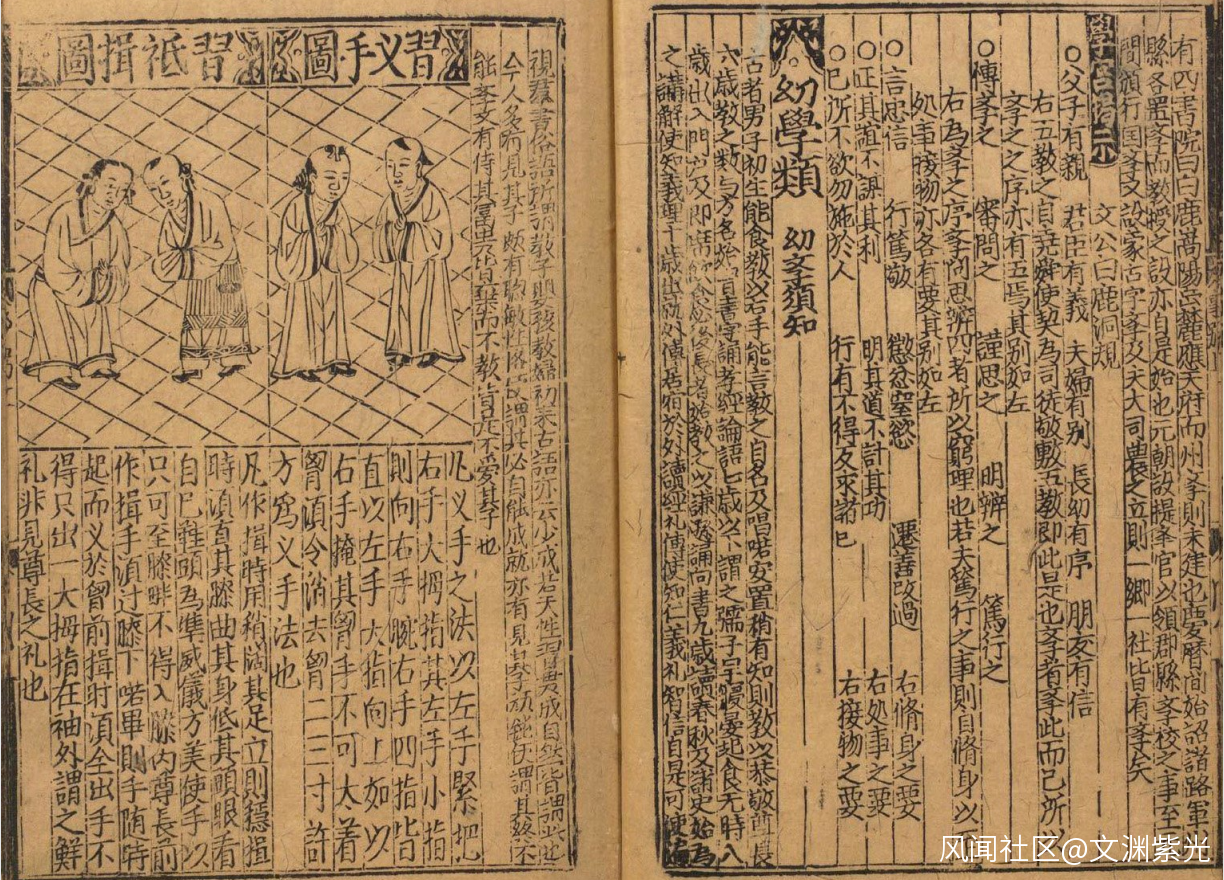 有四書院曰白鹿嵩陽岳麓應天府而州斈則未建也慶曆間始詔諸路軍
縣各置斈而教授之設亦自是始也元朝設提斈官以領郡縣斈校之事至
間頒行国斈又設蒙古字斈及大司農之立則一鄉一社皆有斈矣
文公白鹿洞規
○父子有親 君臣有義 夫婦有别 長幼有序 朋友有信
右五教之目堯舜使契為司徒敬敷五教即此是也斈者斈此而已所
斈之之序亦有五焉其别如左
○博斈之 審問之 謹思之 明辨之 篤行之
右為斈之序斈問思辨四者所以窮理也若夫篤行之事則自脩身以
処事接物亦各有要其别如左
○言忠信 行篤敬 懲忿窒慾 遷善改過 右脩身之要
○正其誼不謀其利 明其道不計其功 右処事之要
○己所不欲勿施於人 行有不得反求諸己 右接物之要
幼學類 幼斈須知
古者男子初生能食教以右手能言教之自名及唱喏安置稍有知則教以恭敬尊長
六歳教之数与方名始習書字誦孝經論語七歳以下謂之孺子早寢晏起食无時八
歳出入門户及即席飲食必後長者始教之以謙讓誦尚書九歳讀春秋及諸史始為
之講解使知義理十歳出就外傅居宿於外讀經礼傳使知仁義礼智信自是可使
視群書俗語所謂教子嬰孩教婦初來古語亦云少成若天性習貫成自然皆謂此也
今人多有見其子頗有聰敏性格以謂其必自能成就亦有見其子頑鈍便謂其終不
能斈又有恃其富貴皆棄而不教皆是不愛其子也
習义手圖
習祗揖圖
凡义手之法以左手緊把
右手大拇指其左手小指
則向右手腕右手四指皆
直以左手大指向上如以
右手掩其胷手不可太着
胷須令消去胷二三寸許
方爲义手法也
凡作揖時用稍闊其足立則穩揖
時須直其膝曲其身低其頭眼看
自己鞋頭為準威儀方美使手以
只可至膝畔不得入膝内尊長前
作揖手須过膝下喏畢則手随時
起而义於胷前揖时須全出手不
得只出一大拇指在袖外謂之鮮
礼非見尊長之礼也
风闻社区@文渊紫光